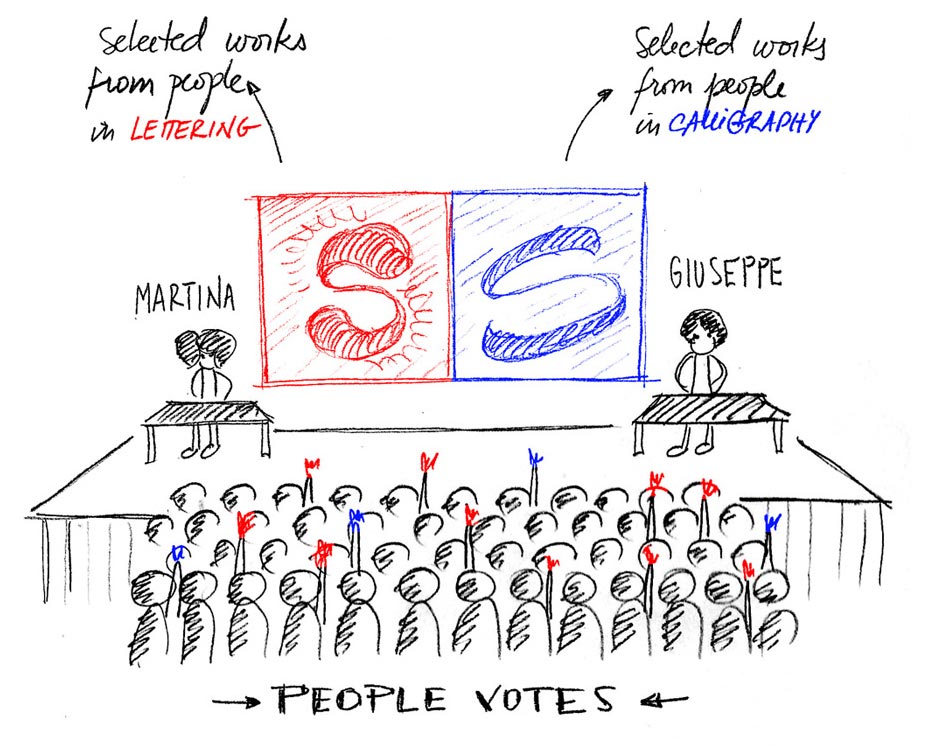 Selected works
from people
in LETTERING
Selected works
from people
in CALLIGRAPHY
S S
MARTINA
GIUSEPPE
→ PEOPLE VOTES ←